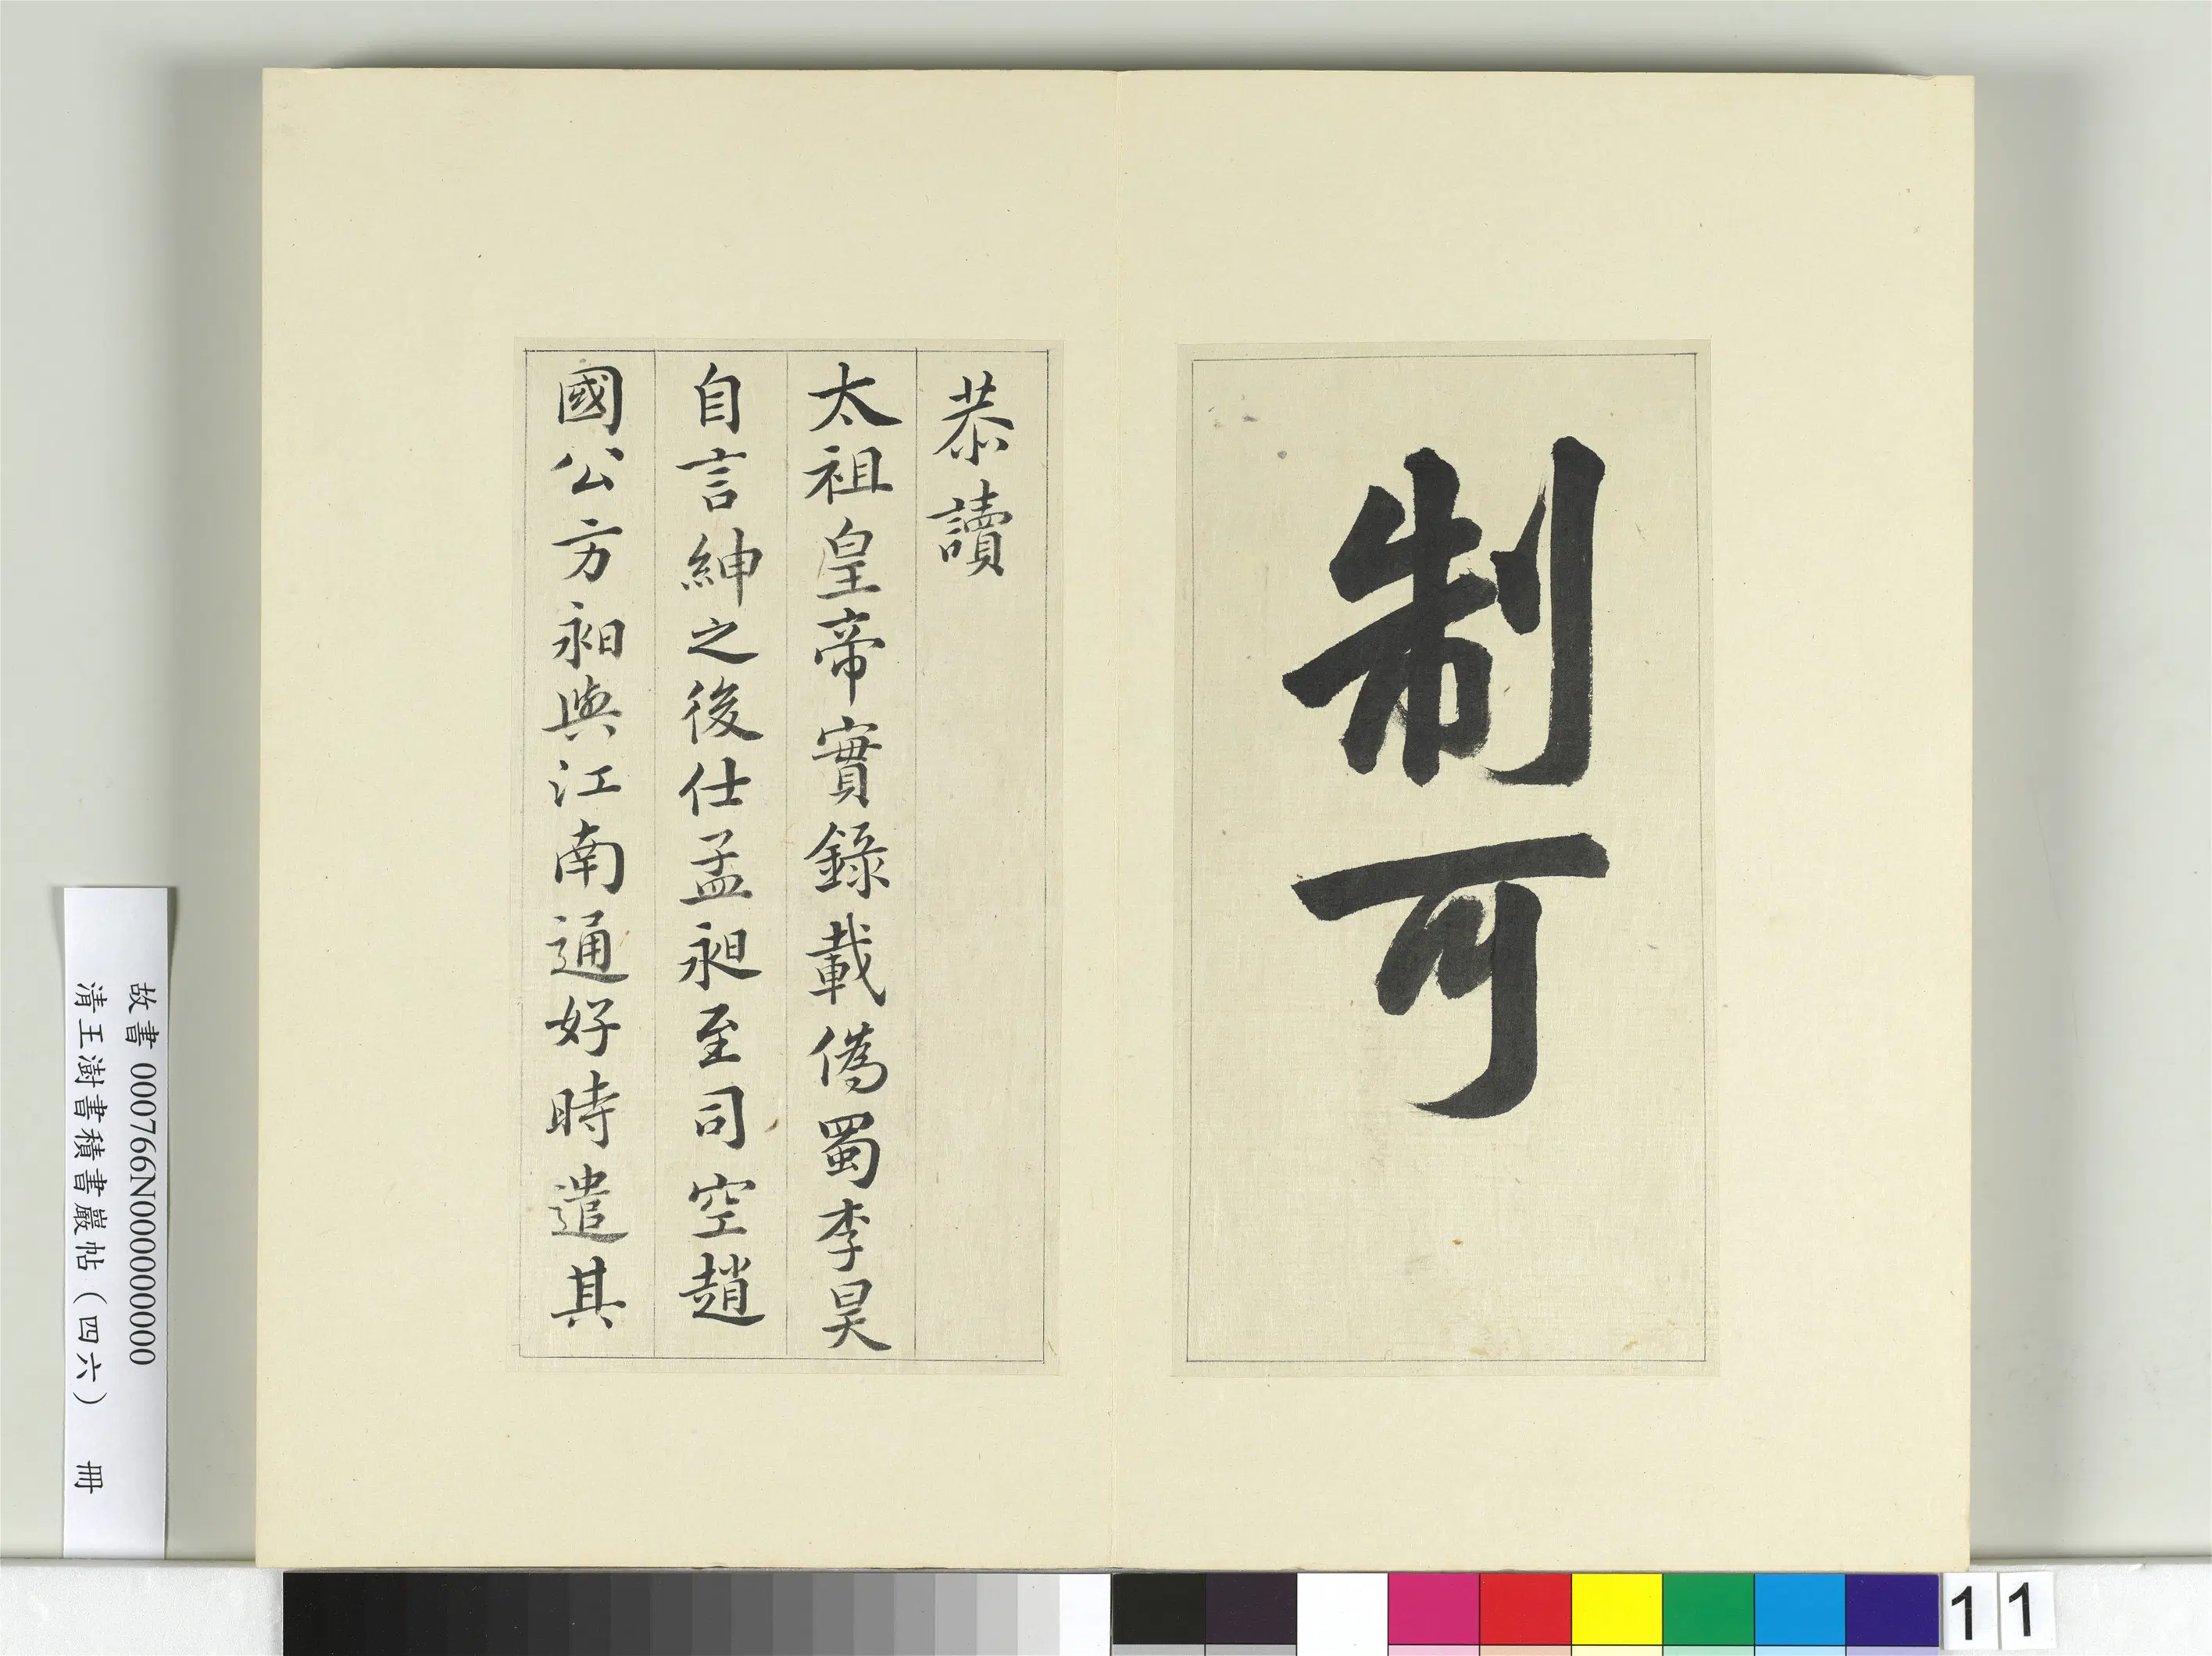 制可
恭讀
太祖皇帝實錄載僞蜀李昊
自言紳之後仕孟昶至司空趙
國公方昶與江南通好時遣其
故書 000766N000000000
清王澍書積書巖帖（四六） 冊
11